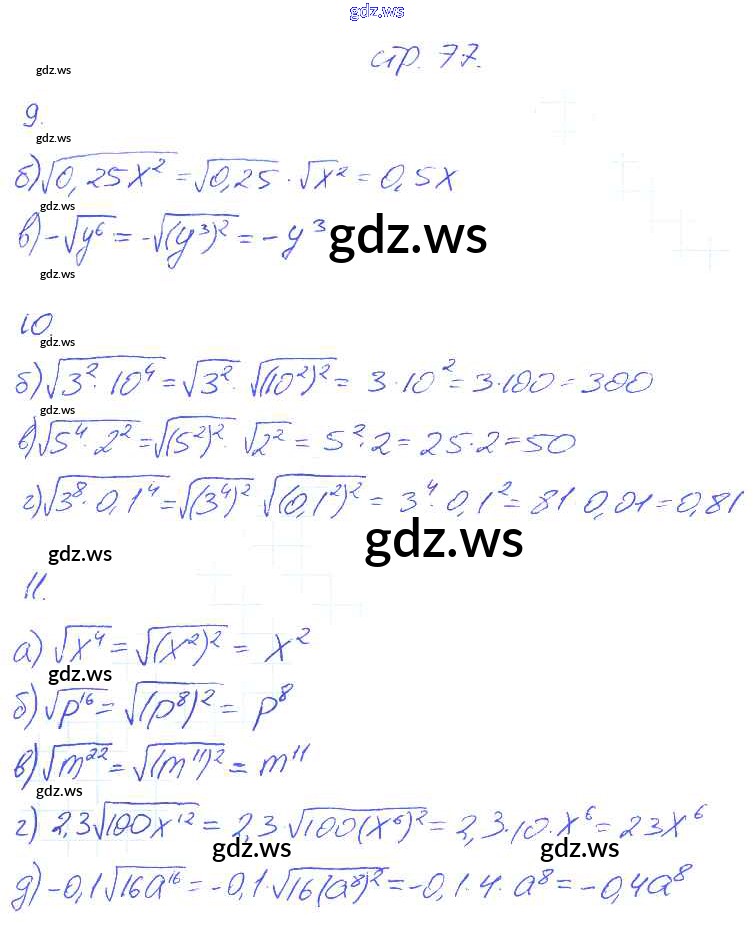 gdz.ws
стр. 77.
gdz.ws
9.
gdz.ws
б) √0,25x² = √0,25 · √x² = 0,5x
gdz.ws
в) -√y⁶ = -√(y³)² = -y³ gdz.ws
gdz.ws
10
gdz.ws
б) √3² · 10⁴ = √3² · √(10²)² = 3 · 10² = 3 · 100 = 300
gdz.ws
в) √5⁴ · 2² = √(5²)² · √2² = 5² · 2 = 25 · 2 = 50
г) √3⁸ · 0,1⁴ = √(3⁴)² √(0,1²)² = 3⁴ · 0,1² = 81 0,01 = 0,81
gdz.ws
gdz.ws
11.
а) √x⁴ = √(x²)² = x²
gdz.ws
б) √p¹⁶ = √(p⁸)² = p⁸
в) √m²² = √(m¹¹)² = m¹¹
gdz.ws
г) 2,3√100x¹² = 2,3 · √100(x⁶)² = 2,3 · 10 · x⁶ = 23x⁶
gdz.ws gdz.ws
д) -0,1√16a¹⁶ = -0,1 · √16(a⁸)² = -0,1 · 4 · a⁸ = -0,4a⁸